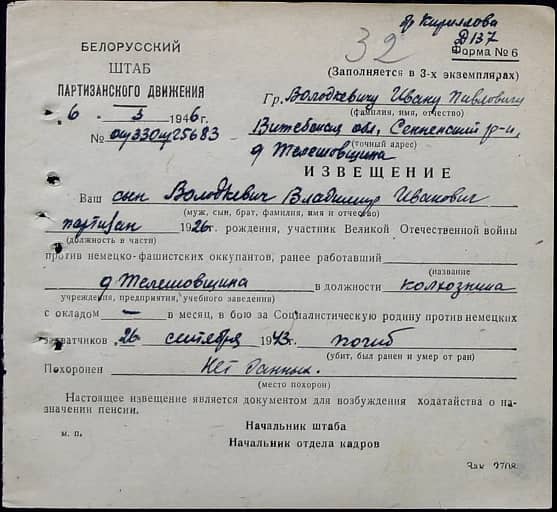 бр Кириллова
32 Д 137
БЕЛОРУССКИЙ
ШТАБ
ПАРТИЗАНСКОГО ДВИЖЕНИЯ
Форма № 6
(Заполняется в 3-х экземплярах)
6 3 1946г.
Гр. Володкевичу Ивану Павловичу
(фамилия, имя, отчество)
№ 25683
Витебская обл, Сенненский р-н,
(точный адрес)
д Телешовщина
ИЗВЕЩЕНИЕ
Ваш сын Володкевич Владимир Иванович
(муж, сын, брат, фамилия, имя и отчество)
партизан 1926 г. рождения, участник Великой Отечественной войны
(должность в части)
против немецко-фашистских оккупантов, ранее работавший
(название
д Телешовщина в должности колхозника
учреждения, предприятия, учебного заведения)
с окладом — в месяц, в бою за Социалистическую родину против немецких
захватчиков 26 сентября 1943г. погиб
(убит, был ранен и умер от ран)
Похоронен Нет данных.
(место похорон)
Настоящее извещение является документом для возбуждения ходатайства о на-
значении пенсии.
Начальник штаба
м. п.
Начальник отдела кадров
Зак. 2708